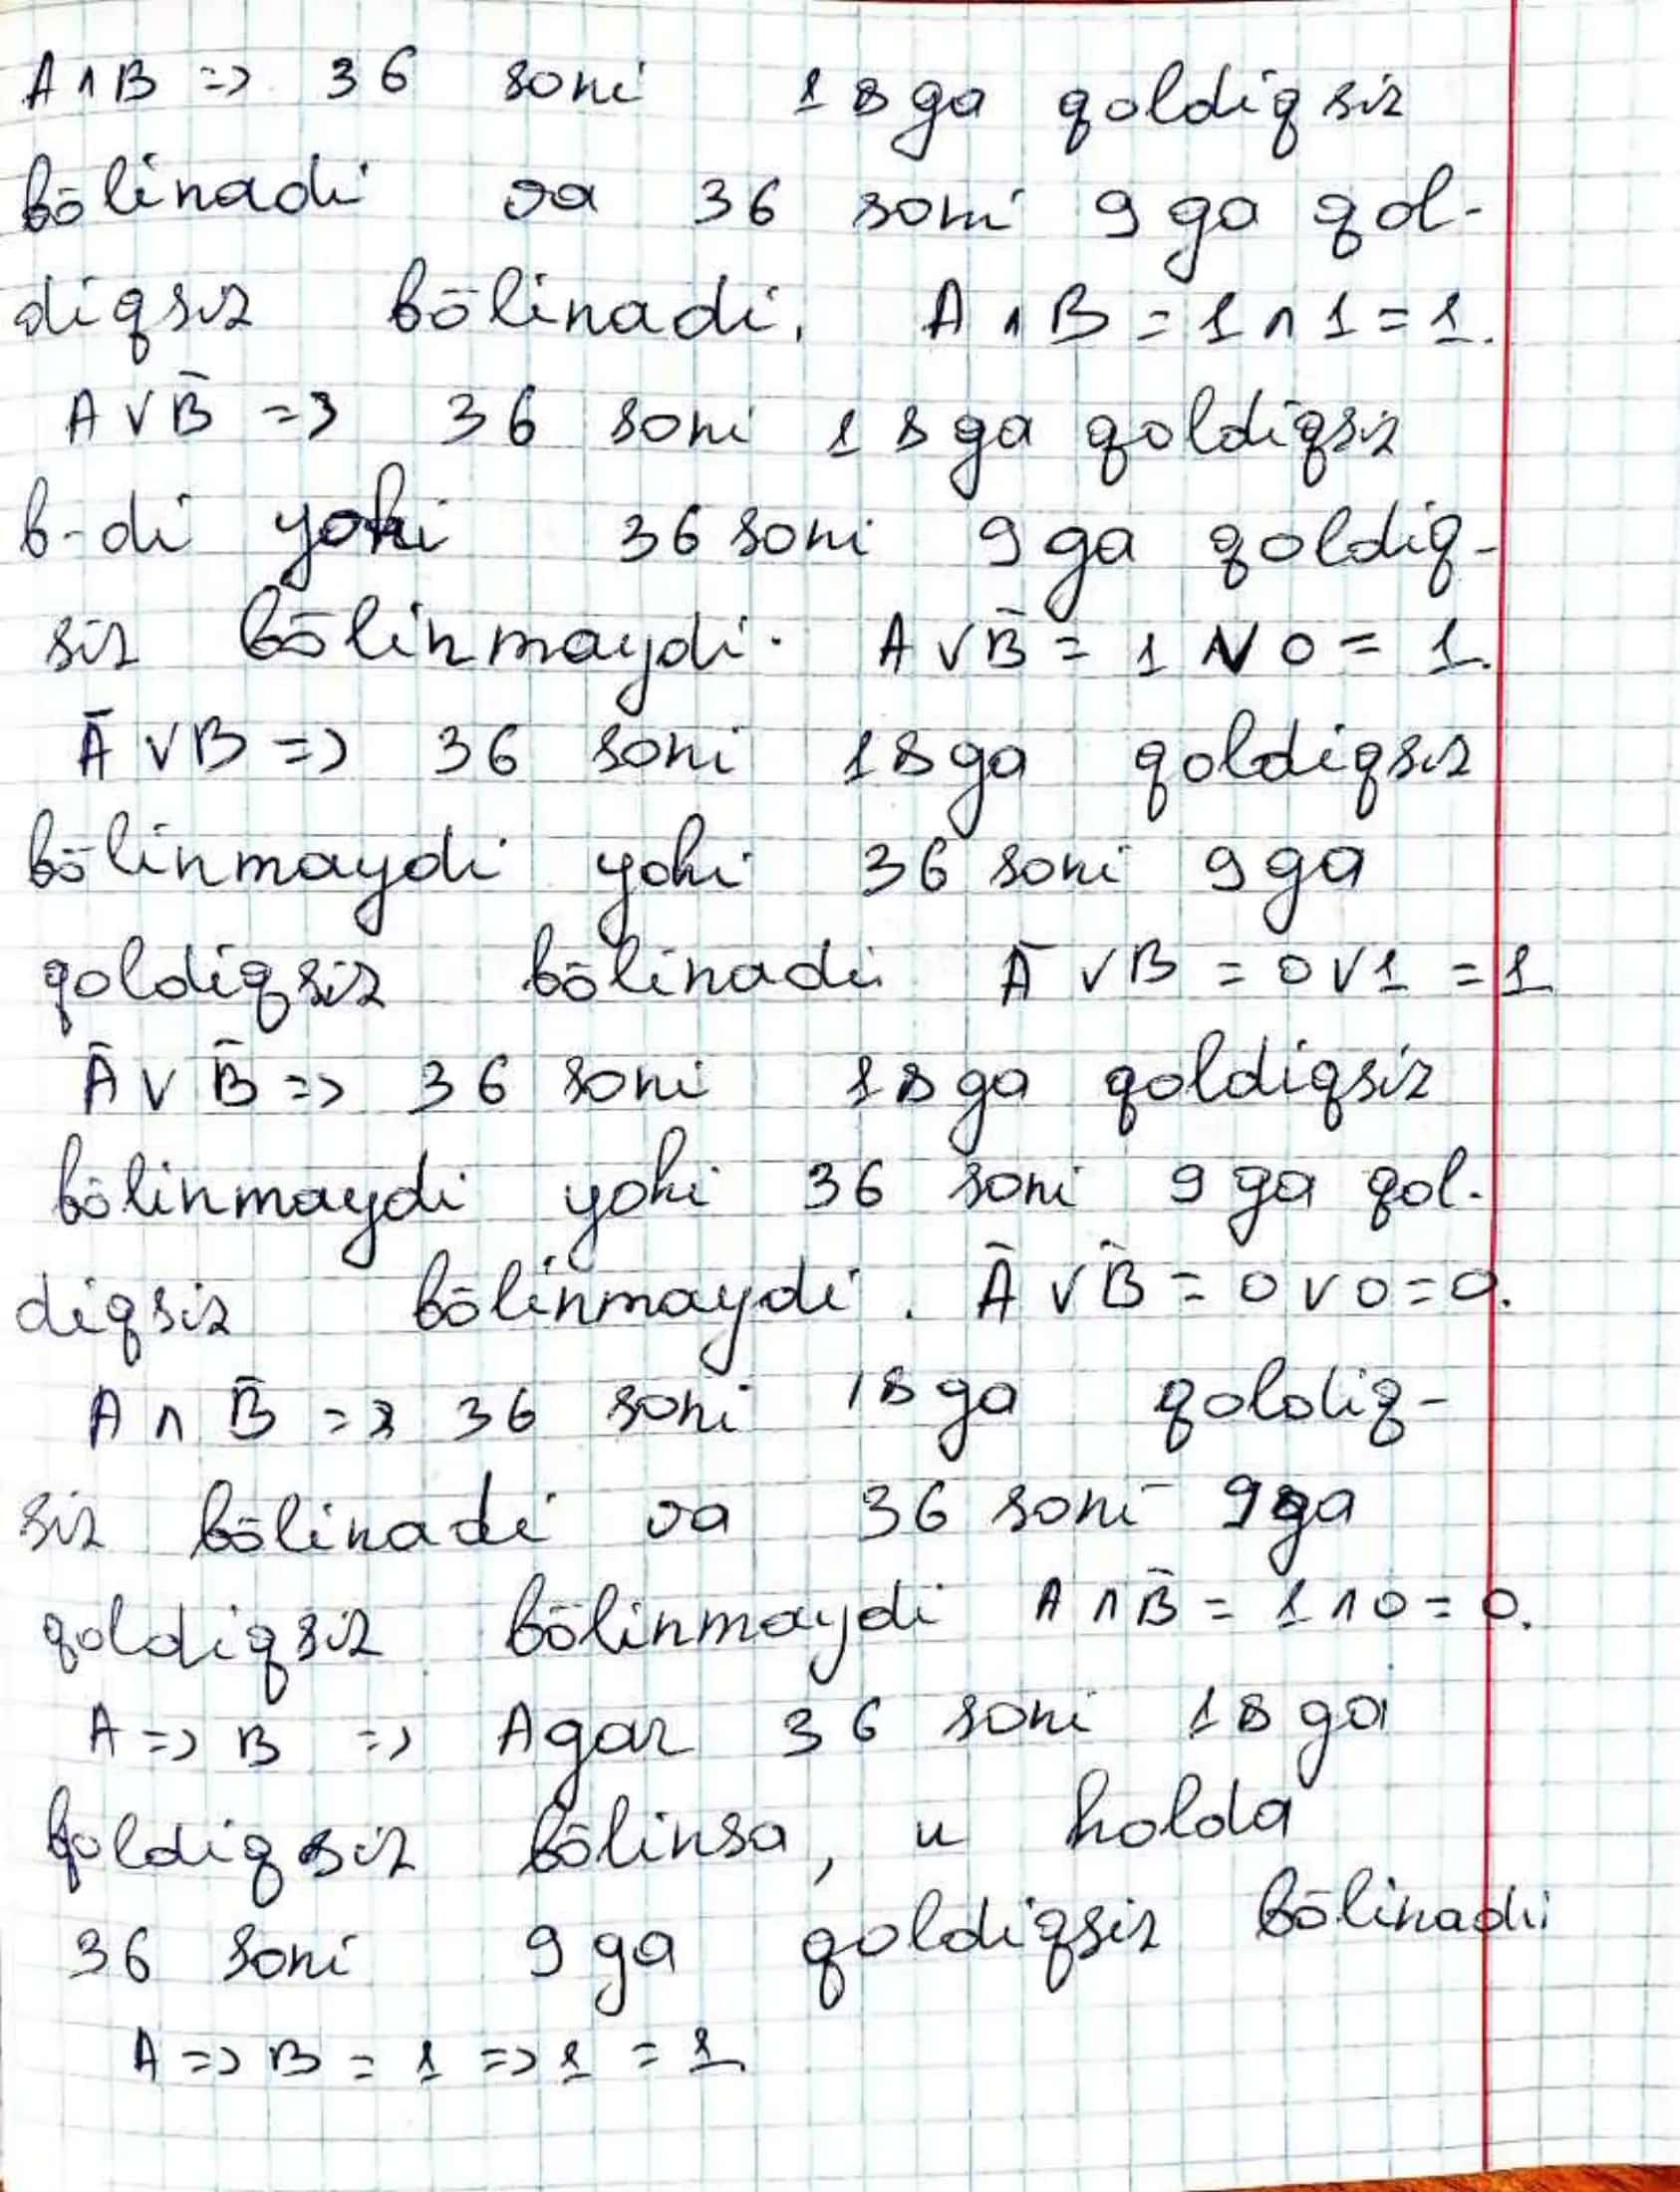 A∧B => 36 soni 18ga qoldiqsiz
bōlinadi va 36 soni 9 ga qol-
diqsiz bōlinadi. A∧B = 1∧1=1.
A∨B̄ => 36 soni 18ga qoldiqsiz
b-di yoki 36 soni 9ga qoldiq-
siz bōlinmaydi. A∨B̄ = 1∨0 = 1.
Ā∨B => 36 soni 18ga qoldiqsiz
bōlinmaydi yoki 36 soni 9ga
qoldiqsiz bōlinadi Ā∨B = 0∨1 = 1
Ā∨B̄ => 36 soni 18ga qoldiqsiz
bōlinmaydi yoki 36 soni 9 ga qol-
diqsiz bōlinmaydi. Ā∨B̄ = 0∨0=0.
A∧B̄ => 36 soni 18ga qoldiq-
siz bōlinadi va 36 soni 9ga
qoldiqsiz bōlinmaydi A∧B̄ = 1∧0=0.
A=>B => Agar 36 soni 18ga
qoldiqsiz bōlinsa, u holda
36 soni 9ga qoldiqsiz bōlinadi
A=>B = 1=>1 = 1.